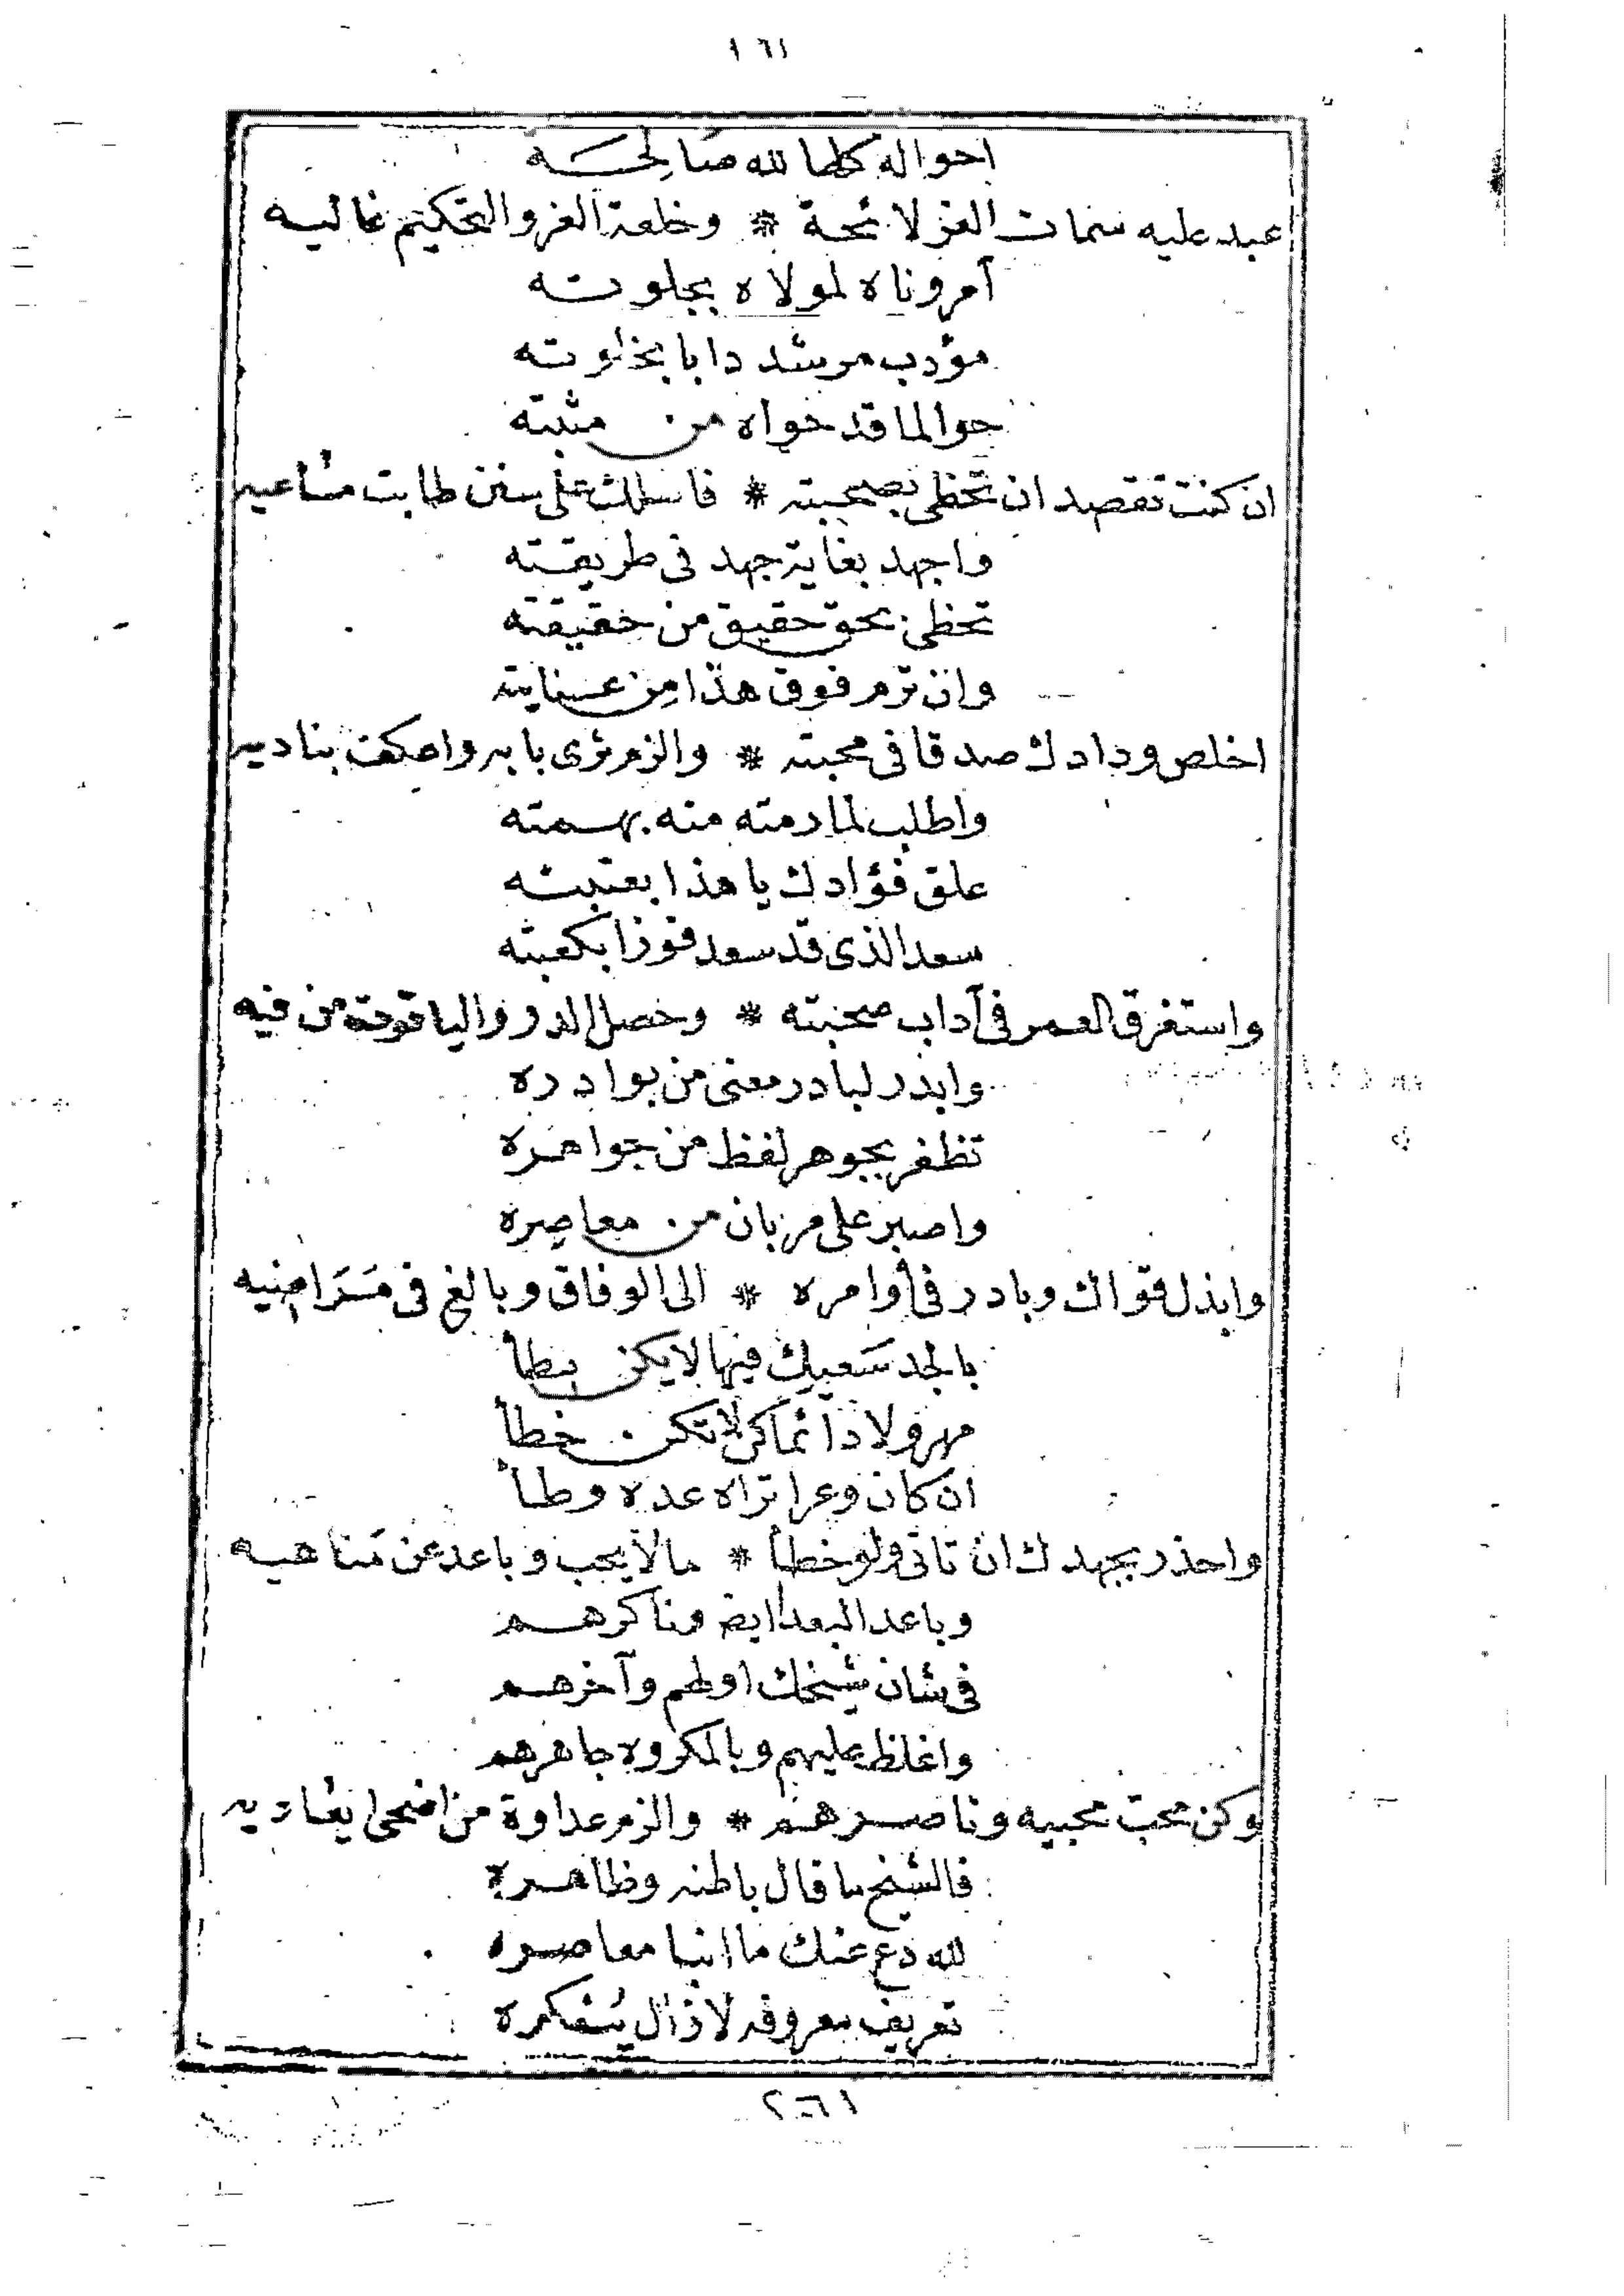 ١٦١
احواله كلها لله صالحة
عبد عليه سمات العز لائحة * وخلعة العز والتحكيم غاليه
آمر وناه لمولاه بجلوته
مؤدب مرشد دابا بخلوته
حوالما قد حواه من مثبته
ان كنت تقصد ان تحظى بصحبته * فاسلك على سنن طابت مساعيه
واجهد بغاية جهد فى طريقته
تحظى بحق حقيق من حقيقته
وان ترم فوق هذا من عنايته
اخلص ودادك صدقا فى محبته * والزم ثرى بابه واعكف بناديه
واطلب لما رمته منه بهمته
علق فؤادك يا هذا بعتبته
سعد الذى قد سعد فوزا بكعبته
واستغرق العمر فى آداب صحبته * وحصل الدر والياقوتة من فيه
وابذر لبادر معنى من بوادره
تظفر بجوهر لفظ من جواهره
واصبر على مر بان من معاصره
وابذل قواك وبادر فى أوامره * الى الوفاق وبالغ فى مَرَاضيه
بالجد سَعيك فيها لا يكن ببطأ
مهرولا دائما كى لا تكن خطأ
ان كان وعرا تراه عده وطأ
واحذر بجهدك ان تاتى ولو خطأ * ما لا يحب وباعد عن مَناهيه
وباعد البعد ايضا مناكرهم
فى شان شيخك اولهم وآخرهم
واغلظ عليهم وبالمكروه جاهرهم
وكن محبّ محبيه وناصرهم * والزم عداوة من اضحى يُعاديه
فالشيخ ما قال باطنه وظاهره
لله دع عنك ما انبا معاصره
تعريف معروفه لازال يُشكره
١٦٢